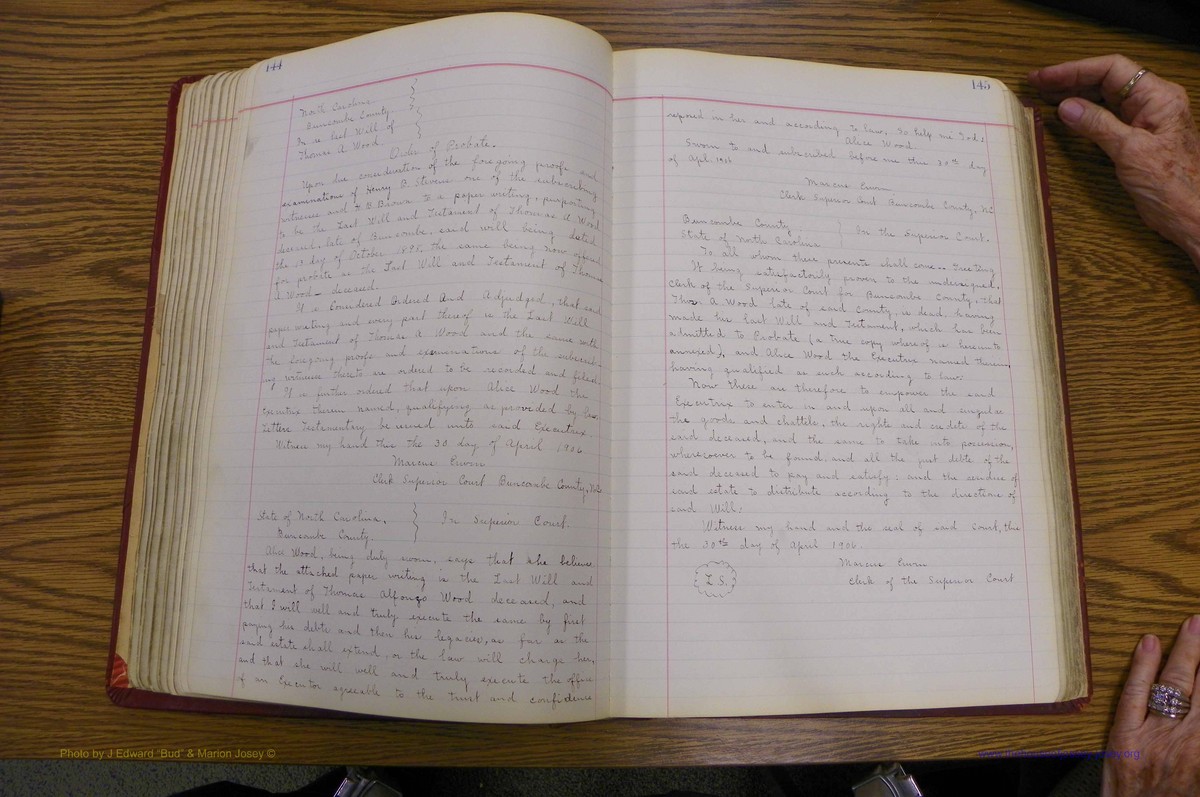 144
North Carolina.
Buncombe County.
In re last Will of
Thomas A Wood.
Order of Probate.
Upon due consideration of the foregoing proofs and
examinations of Henry B. Stevens one of the subscribing
witnesses and to a paper writing, purporting
to be the Last Will and Testament of Thomas A Wood
deceased, late of Buncombe, said will being dated
the day of October 1895, the same being now offered
for probate as the Last Will and Testament of Thomas
A Wood - deceased.
It is Considered Ordered And Adjudged, that said
paper writing and every part thereof is the Last Will
and Testament of Thomas A Wood and the same with
the foregoing proofs and examinations of the subscrib-
ing witness thereto are ordered to be recorded and filed.
It is further ordered that upon Alice Wood the
Executrix therein named, qualifying as provided by law
Letters Testamentary be issued unto said Executrix.
Witness my hand this the 30 day of April 1906
Marcus Erwin
Clerk Superior Court Buncombe County,
State of North Carolina.
Buncombe County.
In Superior Court.
Alice Wood, being duly sworn, says that she believes
that the attached paper writing is the Last Will and
Testament of Thomas Alfonzo Wood deceased, and
that I will well and truly execute the same by first
paying his debts and then his legacies, as far as the
said estate shall extend, or the law will charge her,
and that she will well and truly execute the office
of an Executor agreeable to the trust and confidence
145
reposed in her and according to law. So help me God:
Alice Wood
Sworn to and subscribed before me this 30th day
of Apl. 1906
Marcus Erwin
Clerk Superior Court Buncombe County, NC
Buncombe County
State of North Carolina
In the Superior Court.
To all whom these presents shall come - Greeting
It being satisfactorily proven to the undersigned,
Clerk of the Superior Court for Buncombe County, that
Thos A Wood late of said County, is dead, having
made his Last Will and Testament, which has been
admitted to Probate (a true copy whereof is hereunto
annexed), and Alice Wood the Executrix named therein,
having qualified as such according to law:
Now these are therefore to empower the said
Executrix to enter in and upon all and singular
the goods and chattels, the rights and credits of the
said deceased, and the same to take into possession,
wheresoever to be found, and all the just debts of the
said deceased to pay and satisfy: and the residue of
said estate to distribute according to the direction of
said Will:
Witness my hand and the seal of said Court, this
the 30th day of April 1906.
Marcus Erwin
Clerk of the Superior Court
L. S.
Photo by J Edward "Bud" & Marion Josey ©